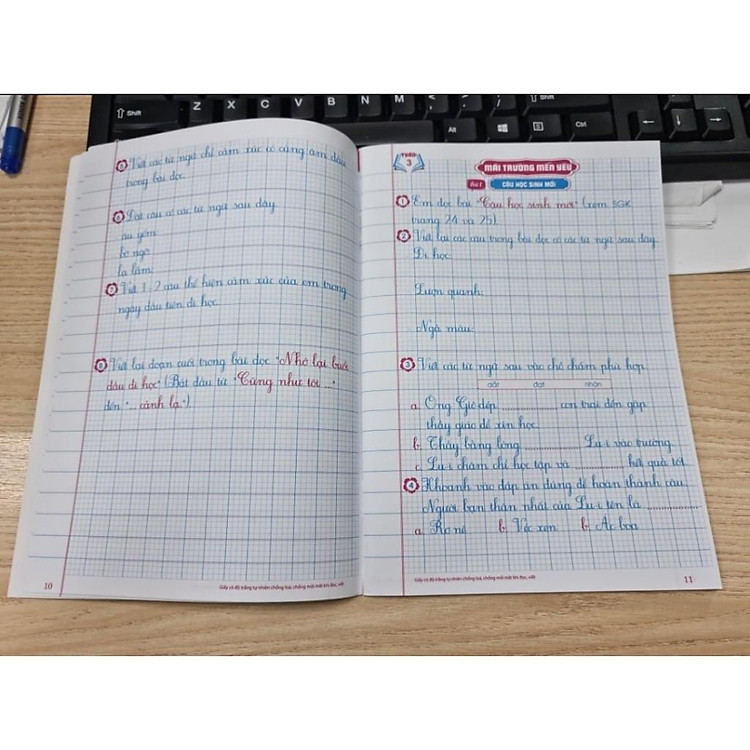 5 Viết các từ ngữ chỉ cảm xúc có cùng âm đầu
trong bài đọc.
6 Đặt câu có các từ ngữ sau đây
âu yếm:
bỡ ngỡ:
lạ lẫm:
7 Viết 1-2 câu thể hiện cảm xúc của em trong
ngày đầu tiên đi học.
8 Viết lại đoạn cuối trong bài đọc "Nhớ lại buổi
đầu đi học" (Bắt đầu từ "Cũng như tôi ..."
đến "... cảnh lạ.")
10
Giấy có độ trắng tự nhiên chống loá, chống mỏi mắt khi đọc, viết
TUẦN
3
MÁI TRƯỜNG MẾN YÊU
Bài 1
CẬU HỌC SINH MỚI
1 Em đọc bài "Cậu học sinh mới" (xem SGK
trang 24 và 25)
2 Viết lại các câu trong bài đọc có các từ ngữ sau đây
Đi học:
Lượn quanh:
Ngả màu:
3 Viết các từ ngữ sau vào chỗ chấm phù hợp.
dắt đạt nhận
a. Ông Giô-dép ............ con trai đến gặp
thầy giáo để xin học.
b. Thầy bằng lòng ............ Lu-i vào trường.
c. Lu-i chăm chỉ học tập và ............ kết quả tốt.
4 Khoanh vào đáp án đúng để hoàn thành câu.
Người bạn thân nhất của Lu-i tên là ............
a. Rơ-nê b. Véc-xen b. Ác-boa
11
Giấy có độ trắng tự nhiên chống loá, chống mỏi mắt khi đọc, viết
Shift
Z X C V B N M
Alt
Alt
Ctrl
Shift